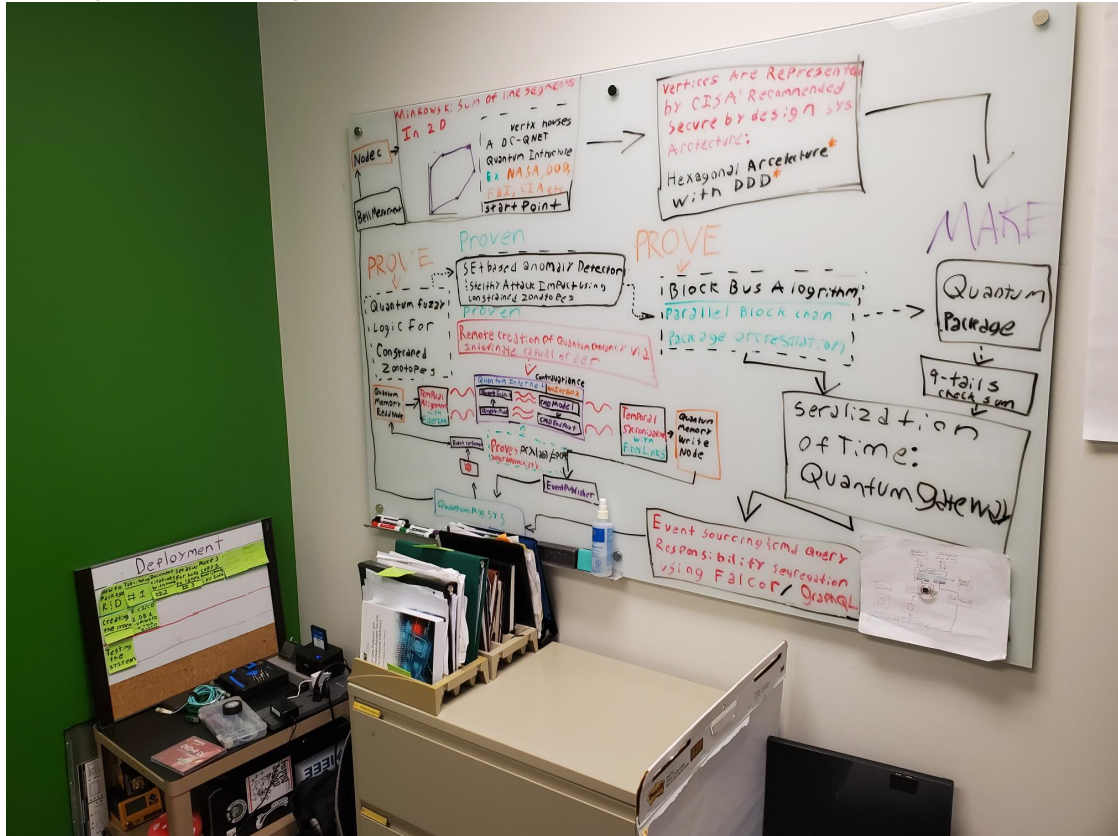 Minkowski Sum of line segments
In 2D
Node c
Bell Mesurment
vertx houses
A DC-QNET
Quantum Intructure
Ex. NASA, DOD,
FBI, CIA etc
start Point
Vertices Are Represente
by CISA Recommended
Secure by design sys
Arctecture:
Hexagonal Arcetecture*
with DDD*
PROVE
Quantum fuzzy
Logic For
Constraned
Zonotopes
Proven
SEt based anomaly Detector
:Stealthy Attack Impact using
constrained zonotopes
Proven
Remote creation of Quantum Coherency via
Indefinate casual order
PROVE
Block Bus Alogrithm:
Parallel Block chain
Package orcrestration
MAKE
Quantum
Package
q-tails
check sum
Seralization
Of Time:
Quantum Gateway
Quantum
Memory
Read Node
Temporal
Alignment
with
FiberLink
Quantum Internet
contravariance
CMD Model
CMD EndPoint
Temporal
Sycronization
with
FiberLinks
Quantum
Memory
Write
Node
Event network
Proves
EventPublisher
Quantum Msg sys
Event sourcing & cmd Query
Responsibility segregation
using Falcor/ GraphQL
Deployment
How to
Package
R:D
#1
Creating
Testing
the
system
IEEE